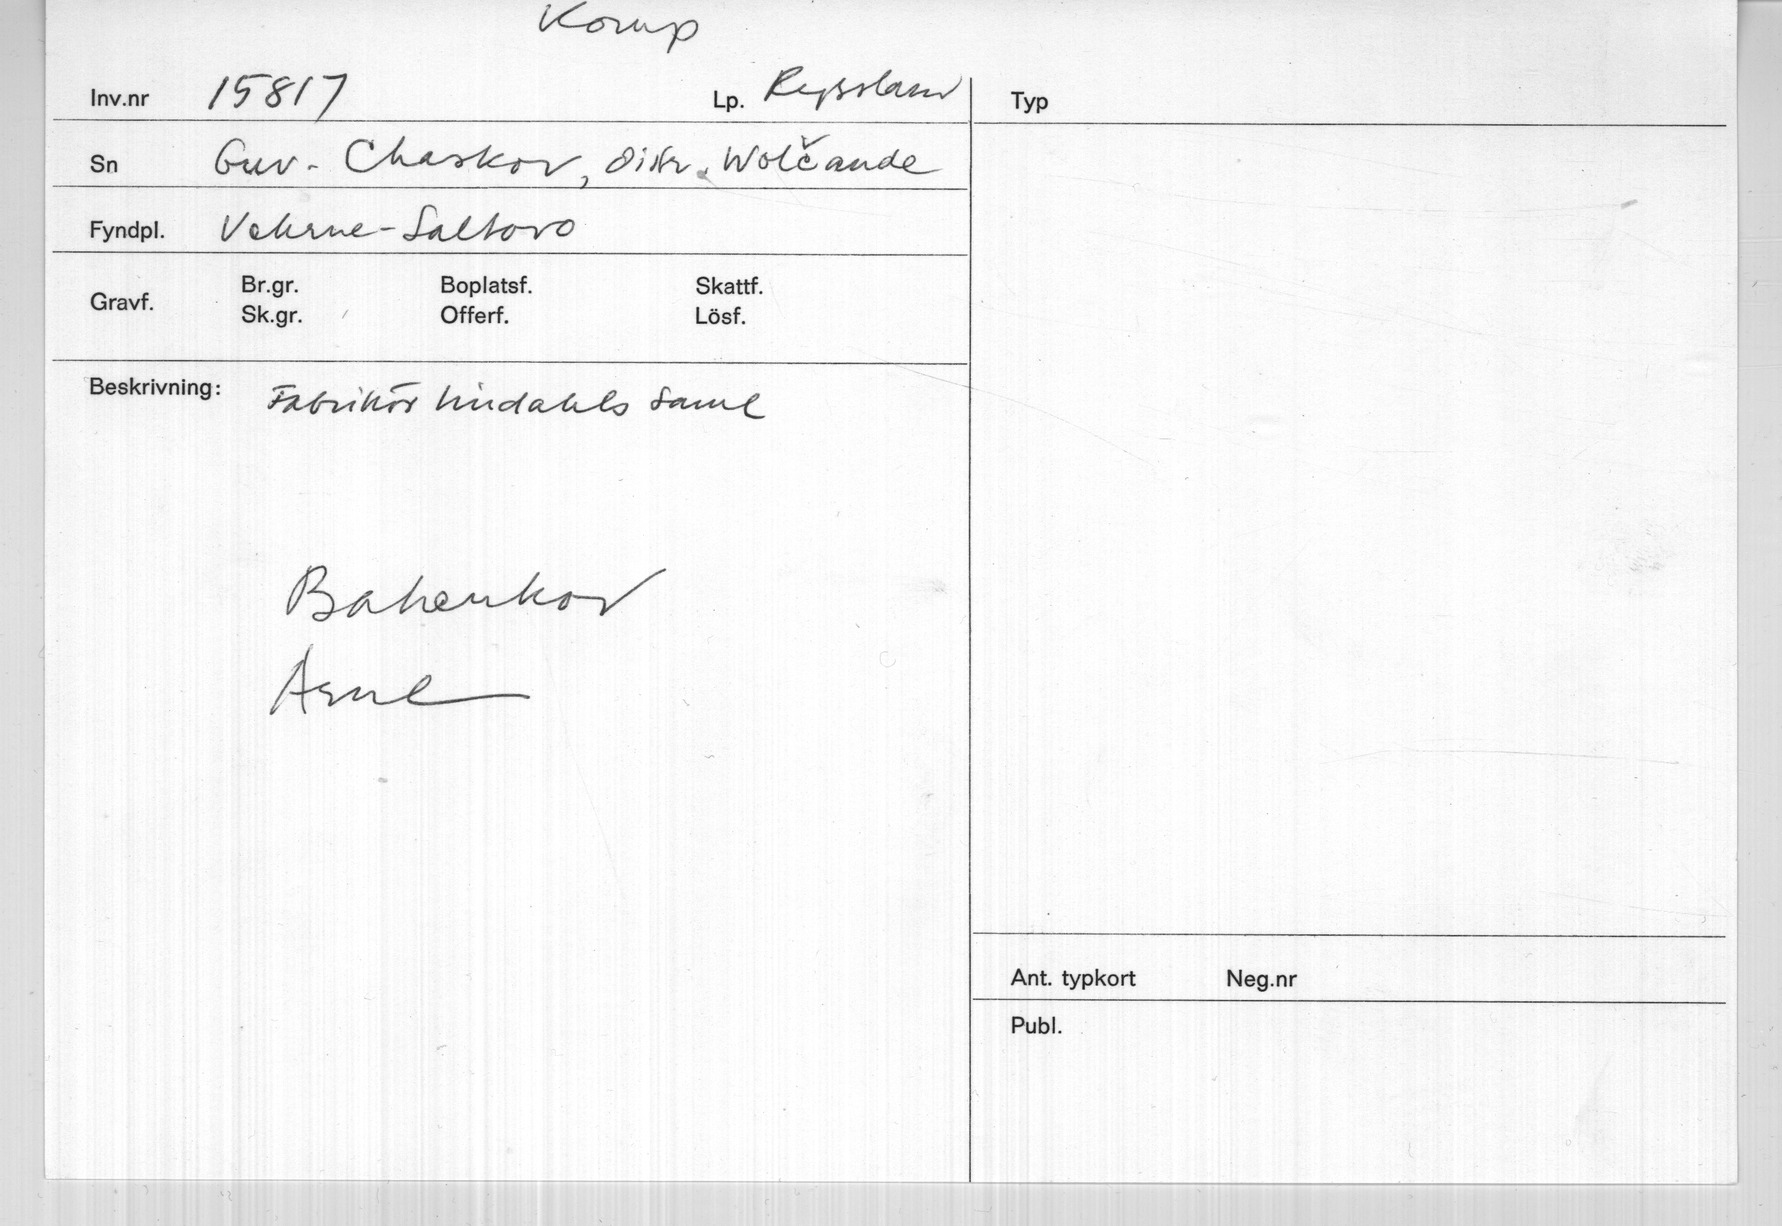 Komp
Inv.nr 15817 Lp. Ryssland Typ
Sn Guv. Chaskov, distr. Wolčande
Fyndpl. Vehrne-Saltovo
Gravf. Br.gr. Boplatsf. Skattf.
Sk.gr. Offerf. Lösf.
Beskrivning: Fabrikör Lindahls saml
Bahenkov
Arne
Ant. typkort Neg.nr
Publ.